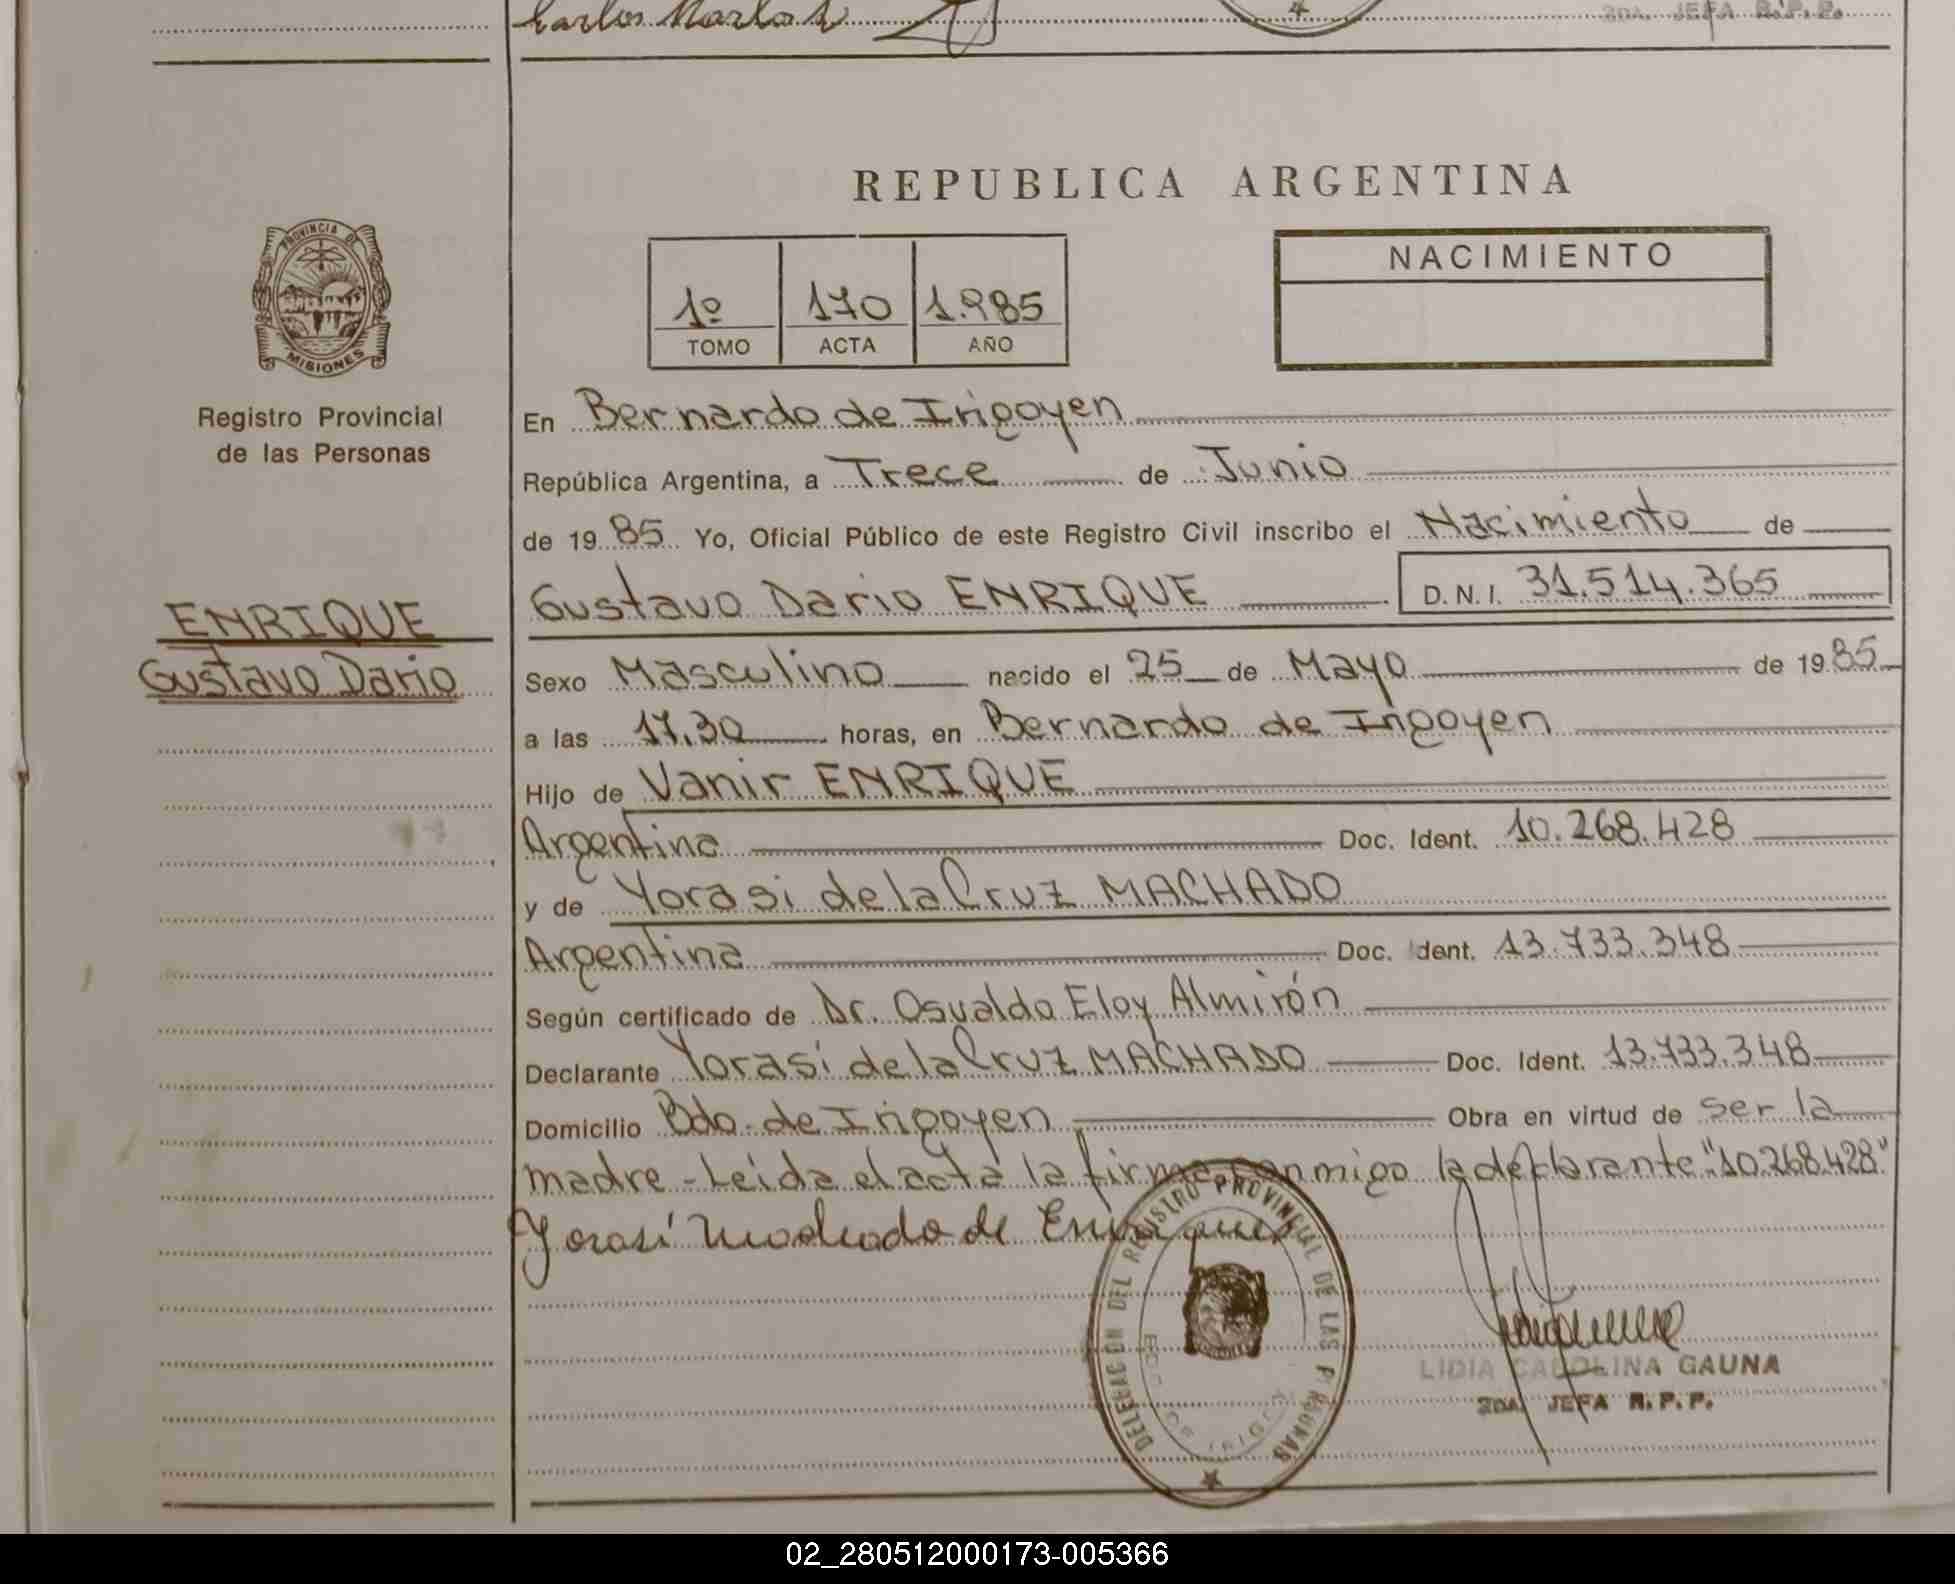 Carlos
2DA. JEFA R.P.P.
REPUBLICA ARGENTINA
PROVINCIA DE
MISIONES
Registro Provincial
de las Personas
1º 170 1.985
TOMO ACTA AÑO
NACIMIENTO
En Bernardo de Irigoyen
República Argentina, a Trece de Junio
de 19 85 Yo, Oficial Público de este Registro Civil inscribo el Nacimiento de
ENRIQUE
Gustavo Dario
Gustavo Dario ENRIQUE D.N.I. 31.514.365
Sexo Masculino nacido el 25 de Mayo de 19 85
a las 17.30 horas, en Bernardo de Irigoyen
Hijo de Vanir ENRIQUE
Argentina Doc. Ident. 10.268.428
y de Yorasi de la Cruz MACHADO
Argentina Doc. Ident. 13.733.348
Según certificado de Dr. Osvaldo Eloy Almirón
Declarante Yorasi de la Cruz MACHADO Doc. Ident. 13.733.348
Domicilio Bdo. de Irigoyen Obra en virtud de ser la
madre - Leída el acta la firma conmigo la declarante "10.268.428"
Yorasí Machado de
DELEGACION DEL REGISTRO PROVINCIAL DE LAS PERSONAS
LIDIA CAROLINA GAUNA
2DA. JEFA R.P.P.
02_280512000173-005366